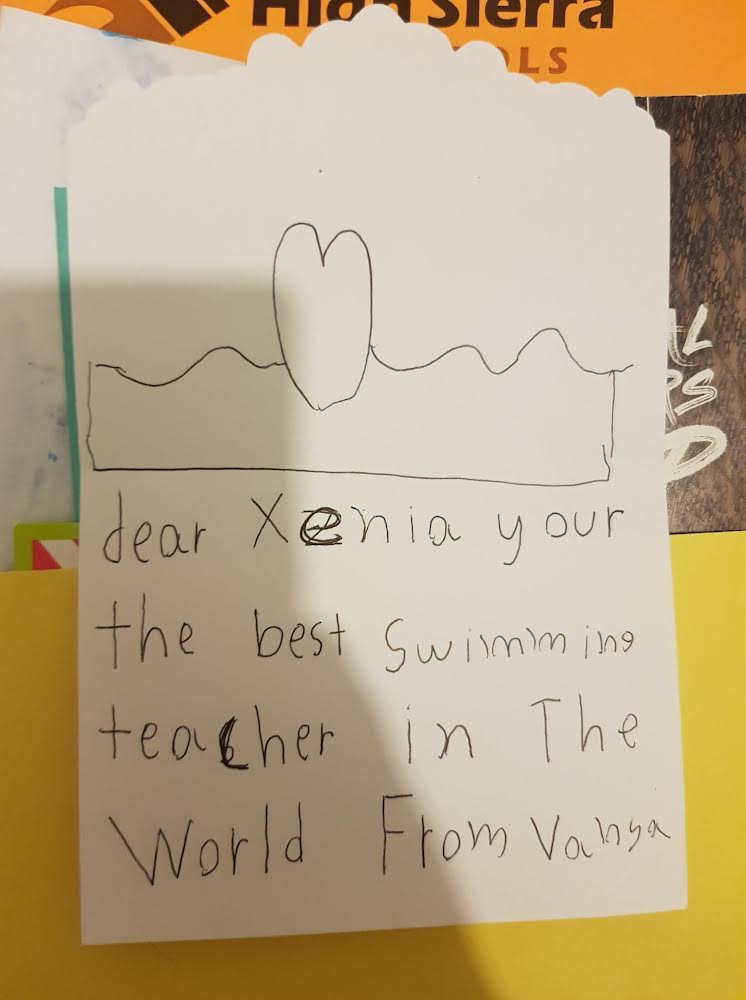 High Sierra
OLS
dear Xenia your
the best swimming
teacher in The
World From Vanya